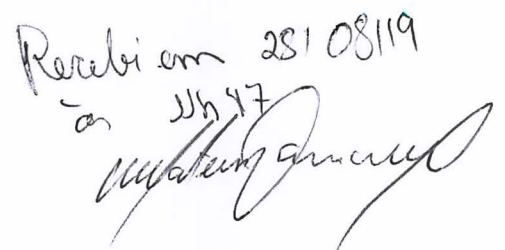 Recebi em 28/08/19
às 11h47